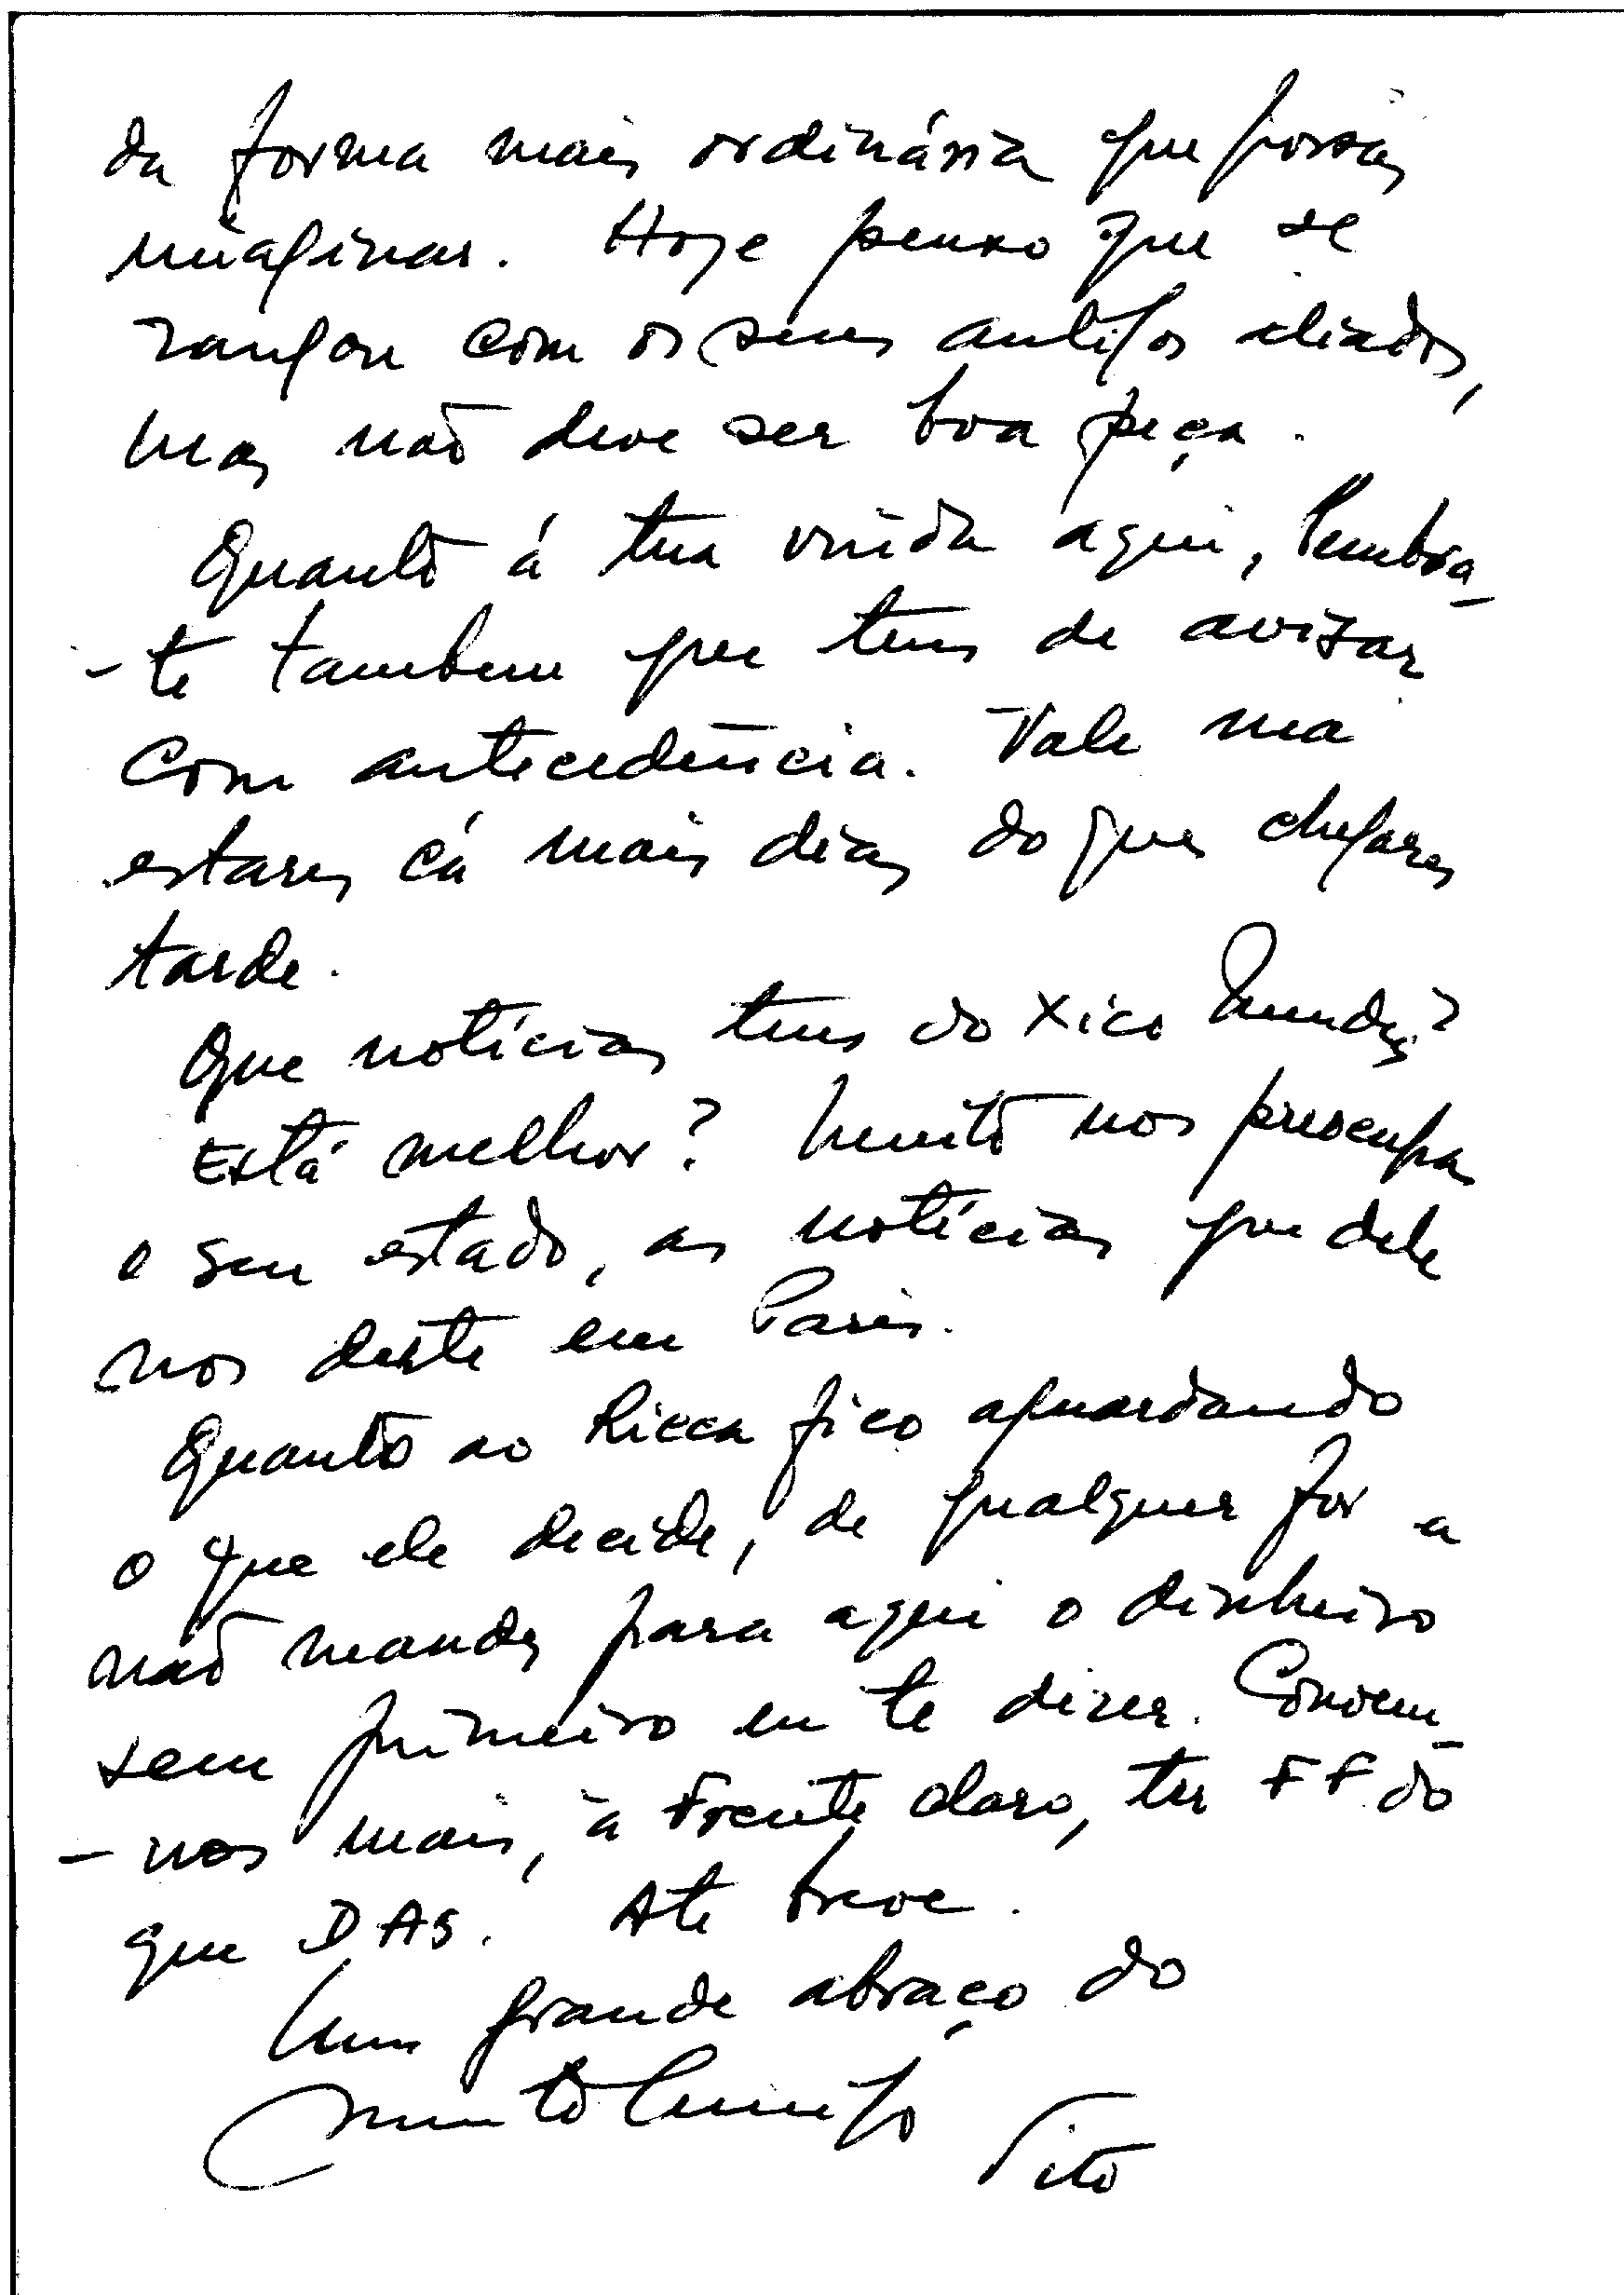 da forma mais ordinária que possas
imaginar. Hoje penso que se
zangou com os seus antigos aliados,
mas não deve ser boa peça.
Quanto á tua vinda aqui, lembra-
-te tambem que tens de avisar
com antecedência. Vale ma
estares cá mais dias do que chegares
tarde.
Que notícias tens do Xico
Está melhor? Muito nos preocupa
o seu estado, as notícias que dele
nos deste em Paris.
Quanto ao Ricca fico aguardando
o que ele decide, de qualquer for a
não mandes para aqui o dinheiro
sem primeiro eu te dizer. Convem-
-nos mais, à frente claro, ter FF do
que DAS. Até breve.
Um grande abraço do
muito amigo Tito